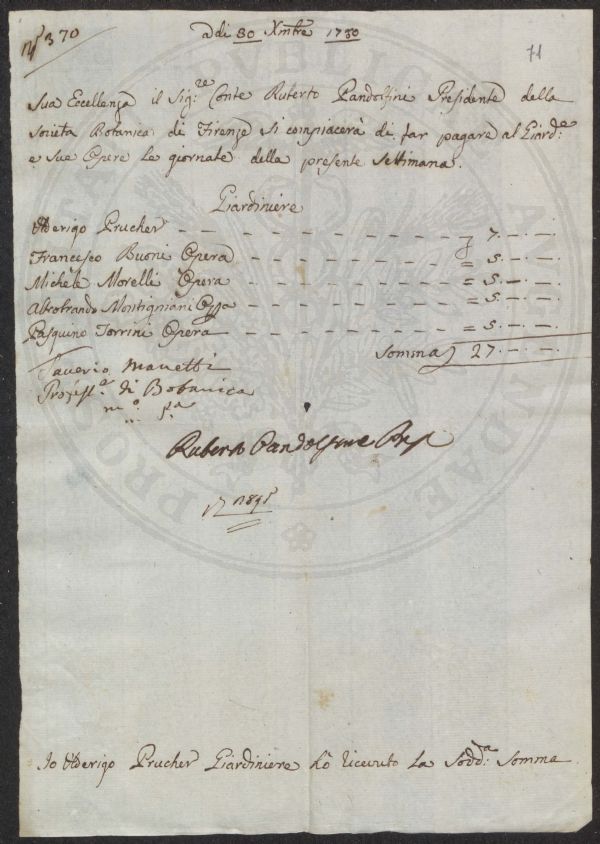 N.° 370
adi 30 Xmbre 1780
71
Sua Eccellenza il Sig:re Conte Ruberto Pandolfini Presidente della
Società Botanica di Firenze si compiacerà di far pagare al Giard:e
e sue Opere le giornate della presente Settimana.
Giardiniere
Oderigo Prucher — — — — — 7.—.—
Francesco Buoni Opera — — — — — = 5.—.—
Michele Morelli Opera — — — — — = 5.—.—
Aldobrando Montigniani Oppa — — — — — = 5.—.—
Pasquino Torrini Opera — — — — — = 5.—.—
Somma 27.—.—
Saverio Manetti
Profess.e di Botanica
m.o p.a
Ruberto Pandolfini Pres.
Io Oderigo Prucher Giardiniere hò ricevuto la Sodd:a Somma
PUBLICAE
PROSPERITATI
AUGENDAE